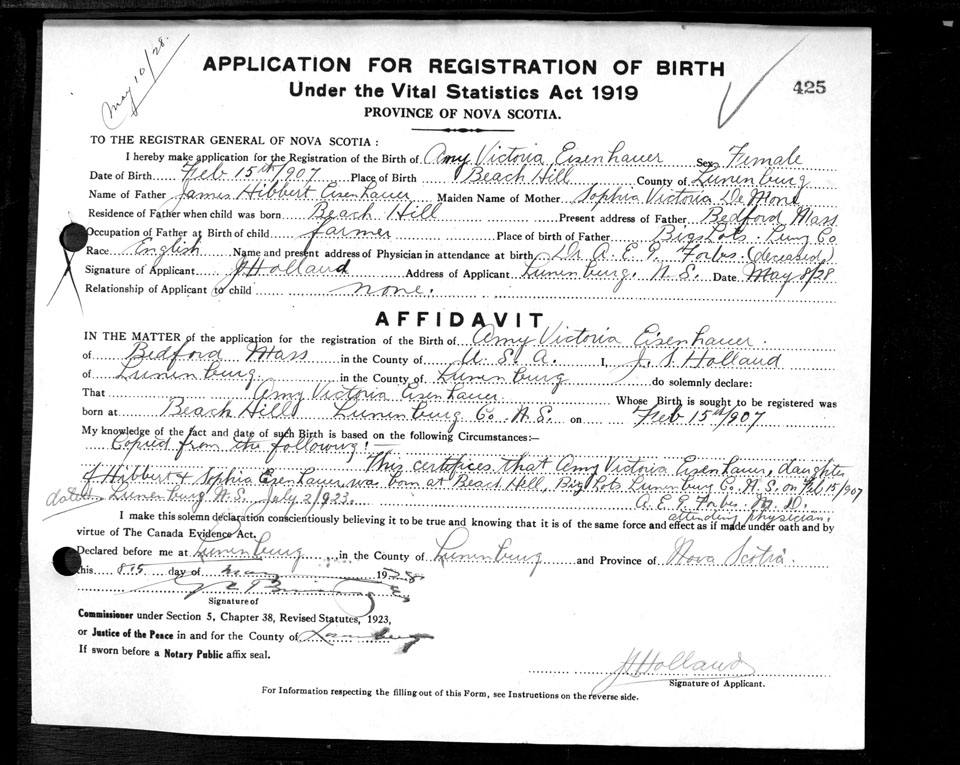 May 10/28.
APPLICATION FOR REGISTRATION OF BIRTH
Under the Vital Statistics Act 1919
425
PROVINCE OF NOVA SCOTIA.
TO THE REGISTRAR GENERAL OF NOVA SCOTIA :
I hereby make application for the Registration of the Birth of Amy Victoria Eisenhauer Sex Female
Date of Birth Feb 15th/907 Place of Birth Beach Hill County of Lunenburg
Name of Father James Hibbert Eisenhauer Maiden Name of Mother Sophia Victoria De Mone
Residence of Father when child was born Beach Hill Present address of Father Bedford Mass
Occupation of Father at Birth of child farmer Place of birth of Father Big Lots Lung Co
Race English Name and present address of Physician in attendance at birth Dr A. E. G. Forbs. (deceased)
Signature of Applicant J Holland Address of Applicant Lunenburg. N. S. Date May 8/28
Relationship of Applicant to child none.
AFFIDAVIT
IN THE MATTER of the application for the registration of the Birth of Amy Victoria Eisenhauer.
of Bedford Mass in the County of U. S. A. I, J. S Holland
of Lunenburg. in the County of Lunenburg do solemnly declare:
That Amy Victoria Eisenhauer Whose Birth is sought to be registered was
born at Beach Hill Lunenburg Co. N. S. on Feb 15th/907
My knowledge of the fact and date of such Birth is based on the following Circumstances:—
Copied from the following! —
This certifies that Amy Victoria Eisenhauer, daughter
of Hibbert & Sophia Eisenhauer was born at Beach Hill, Big Lots Lunenburg Co. N. S. on Feb 15/907
dated Lunenburg N. S. July 2/923. A. E. G. Forbes M. D.
attending physician.
I make this solemn declaration conscientiously believing it to be true and knowing that it is of the same force and effect as if made under oath and by
virtue of The Canada Evidence Act.
Declared before me at Lunenburg in the County of Lunenburg and Province of Nova Scotia.
this 8th day of May 1928
Signature of
Commissioner under Section 5, Chapter 38, Revised Statutes, 1923,
or Justice of the Peace in and for the County of Lunenburg
If sworn before a Notary Public affix seal.
J Holland
Signature of Applicant.
For Information respecting the filling out of this Form, see Instructions on the reverse side.